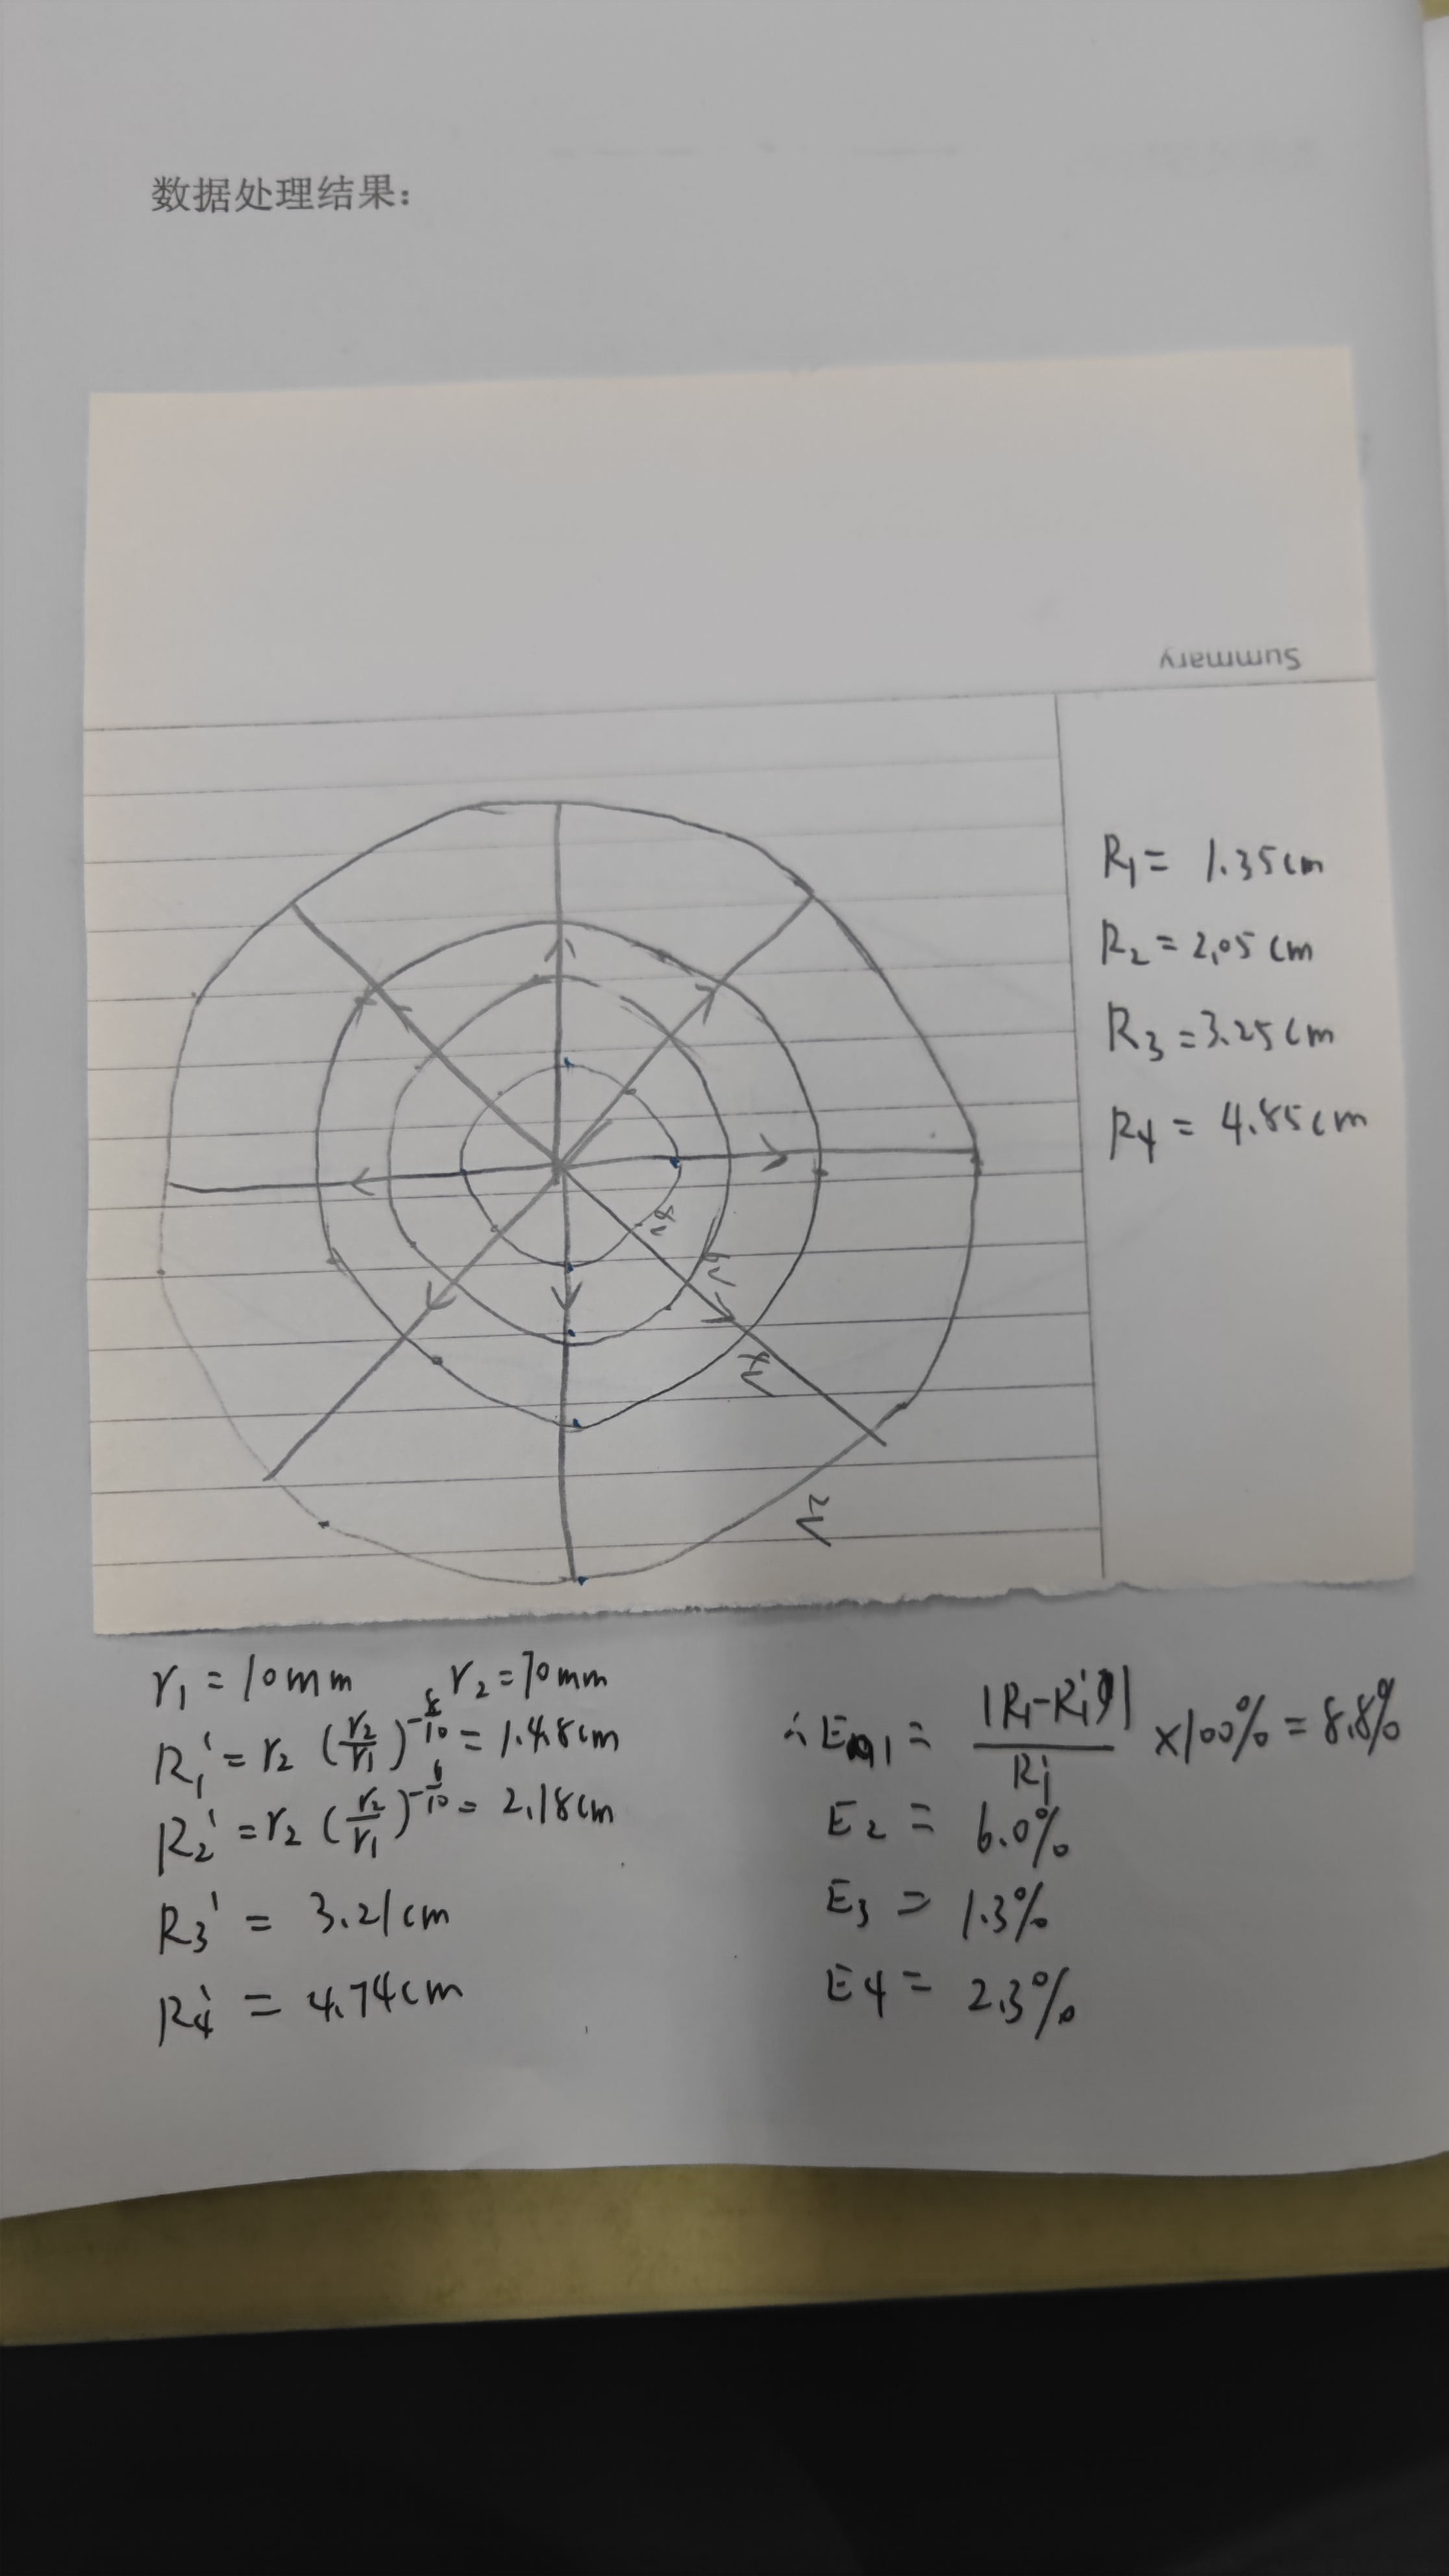 数据处理结果:
Summary
R₁ = 1.35cm
R₂ = 2.05 cm
R₃ = 3.25 cm
R₄ = 4.85cm
8V
6V
4V
2V
r₁ = 10mm r₂ = 70mm
R₁' = r₂ (r₂/r₁)^(-8/10) = 1.48cm
R₂' = r₂ (r₂/r₁)^(-6/10) = 2.18cm
R₃' = 3.21cm
R₄' = 4.74cm
∴ E₁ = |R₁-R₁'|/R₁' ×100% = 8.8%
E₂ = 6.0%
E₃ = 1.3%
E₄ = 2.3%